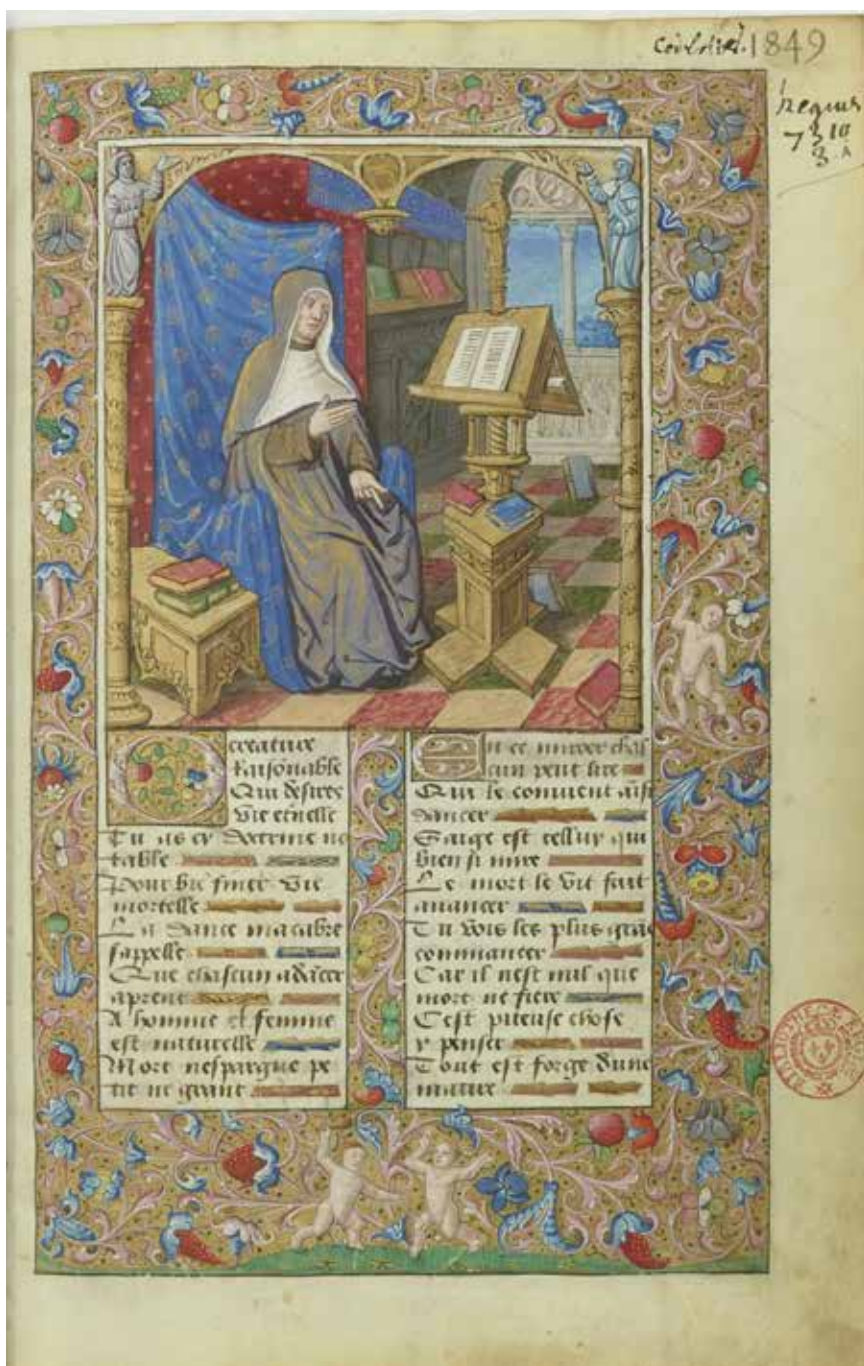 1849
7310
3 A
O creature
Raisonable
Qui desires
Vie et̃nelle
Tu as cy doctrine no
table
Pour biē finer vie
mortelle
La dance macabre
sappelle
Que chascun a dācer
aprent
A homme et femme
est naturelle
Mort nespargne pe
tit ne grant
En ce miroer chas
cun peut lire
Qui le convient aīsi
dancer
Saige est celluy qui
bien si mire
Le mort le vif fait
avancer
Tu vois les plus grās
commancer
Car il nest nul que
mort ne fiere
Cest piteuse chose
y penser
Tout est forge dune
matiere